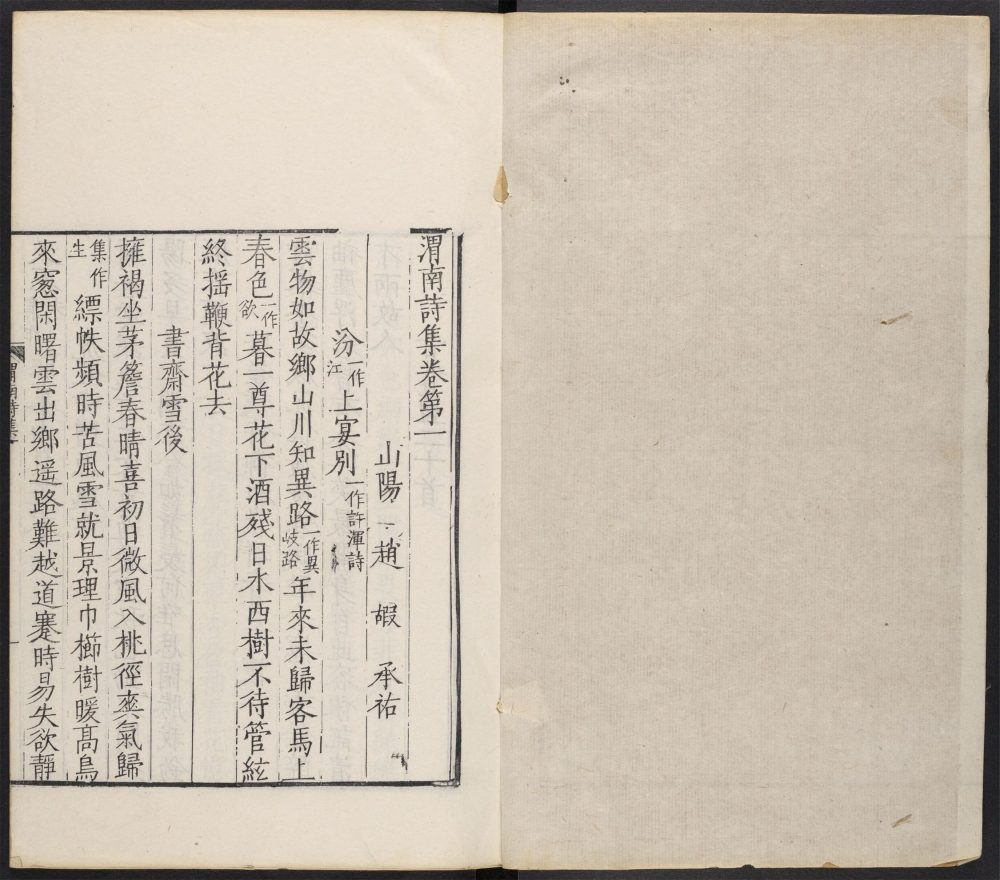 渭南詩集卷第一
山陽 趙 嘏 承祐
汾一作江上宴別一作許渾詩
雲物如故鄉山川知異路一作異岐路年來未歸客馬上
春色一作欲暮一尊花下酒殘日水西樹不待管絃
終揺鞭背花去
書齋雪後
擁褐坐茅簷春晴喜初日微風入桃徑爽氣歸
集作生縹帙頻時苦風雪就景理巾櫛樹暖髙鳥
來窓閑曙雲出鄉遥路難越道蹇時易失欲靜
渭南詩集